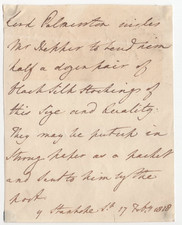 Lord Palmerston wishes
Mr Dapper to send him
half a dozen pair of
Black Silk Stockings of
this Size and Quality.
They may be put up in
Strong paper as a packet
and sent to him by the
post
9 Stanhope St. 17 Feby